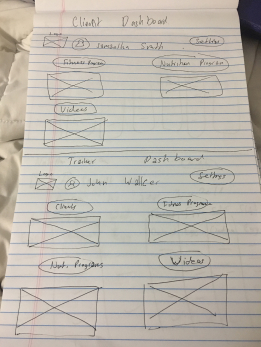 Client Dashboard
Logo Samantha Smith Settings
Fitness Program Nutrition Program
Videos
Trainer Dashboard
Logo John Walker Settings
Clients Fitness Programs
Nutri. Programs Videos